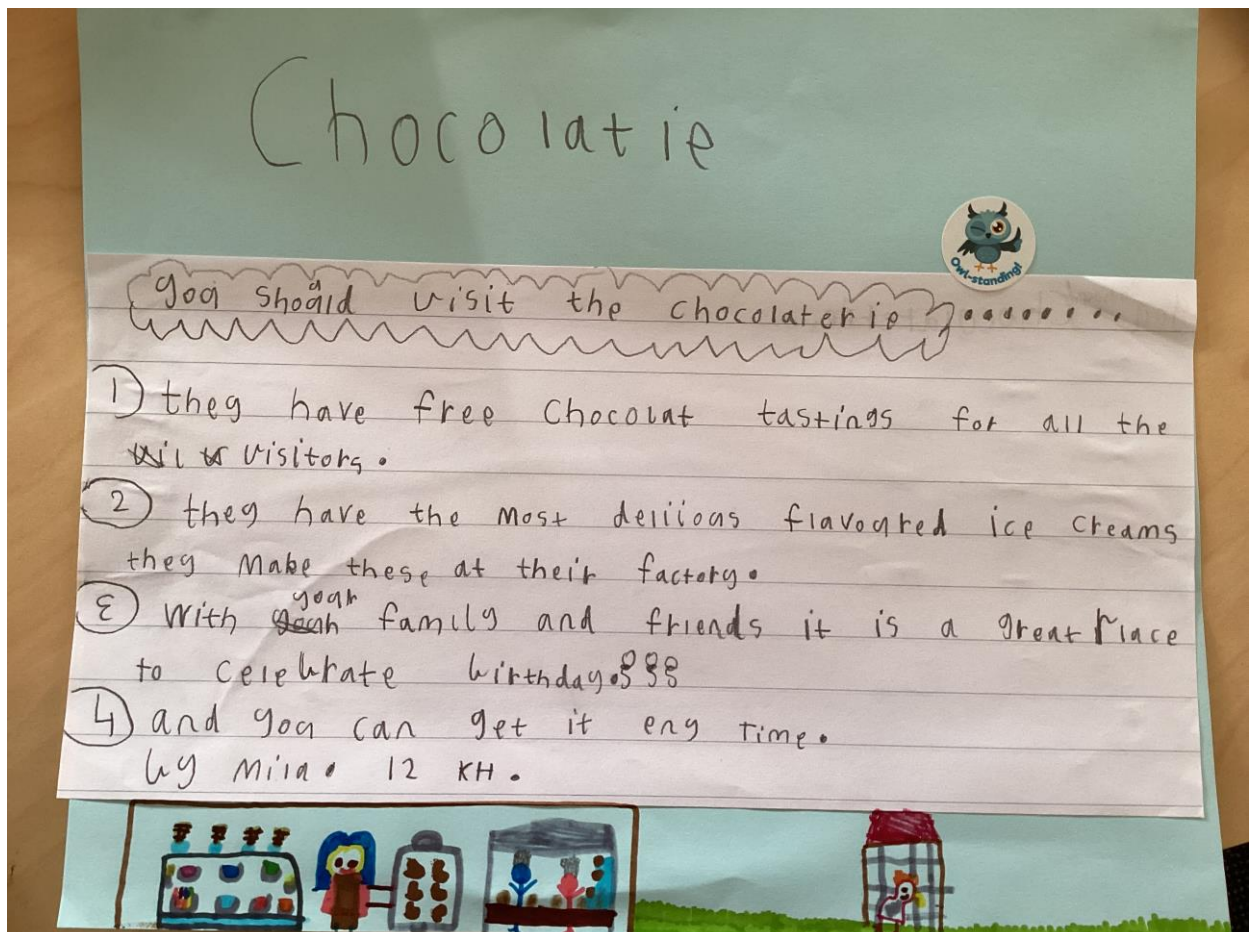 Chocolatie
Owl-standing!
you should visit the chocolaterie ........
1 they have free chocolat tastings for all the
visitors.
2 they have the most deliious flavoured ice creams
they make these at their factory.
3 With your family and friends it is a great Place
to celebrate birthday.
4 and you can get it eny time.
by Mila. 12 KH.